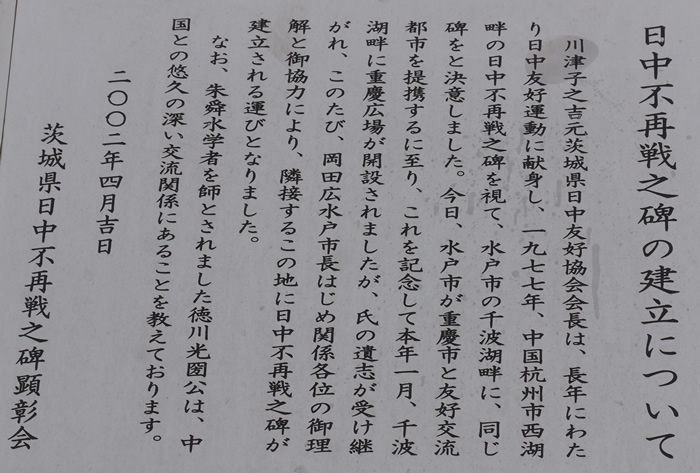 日中不再戦之碑の建立について
川津子之吉元茨城県日中友好協会会長は、長年にわた
り日中友好運動に献身し、一九七七年、中国杭州市西湖
畔の日中不再戦之碑を視て、水戸市の千波湖畔に、同じ
碑をと決意しました。今日、水戸市が重慶市と友好交流
都市を提携するに至り、これを記念して本年一月、千波
湖畔に重慶広場が開設されましたが、氏の遺志が受け継
がれ、このたび、岡田広水戸市長はじめ関係各位の御理
解と御協力により、隣接するこの地に日中不再戦之碑が
建立される運びとなりました。
なお、朱舜水学者を師とされました徳川光圀公は、中
国との悠久の深い交流関係にあることを教えております。
二〇〇二年四月吉日
茨城県日中不再戦之碑顕彰会